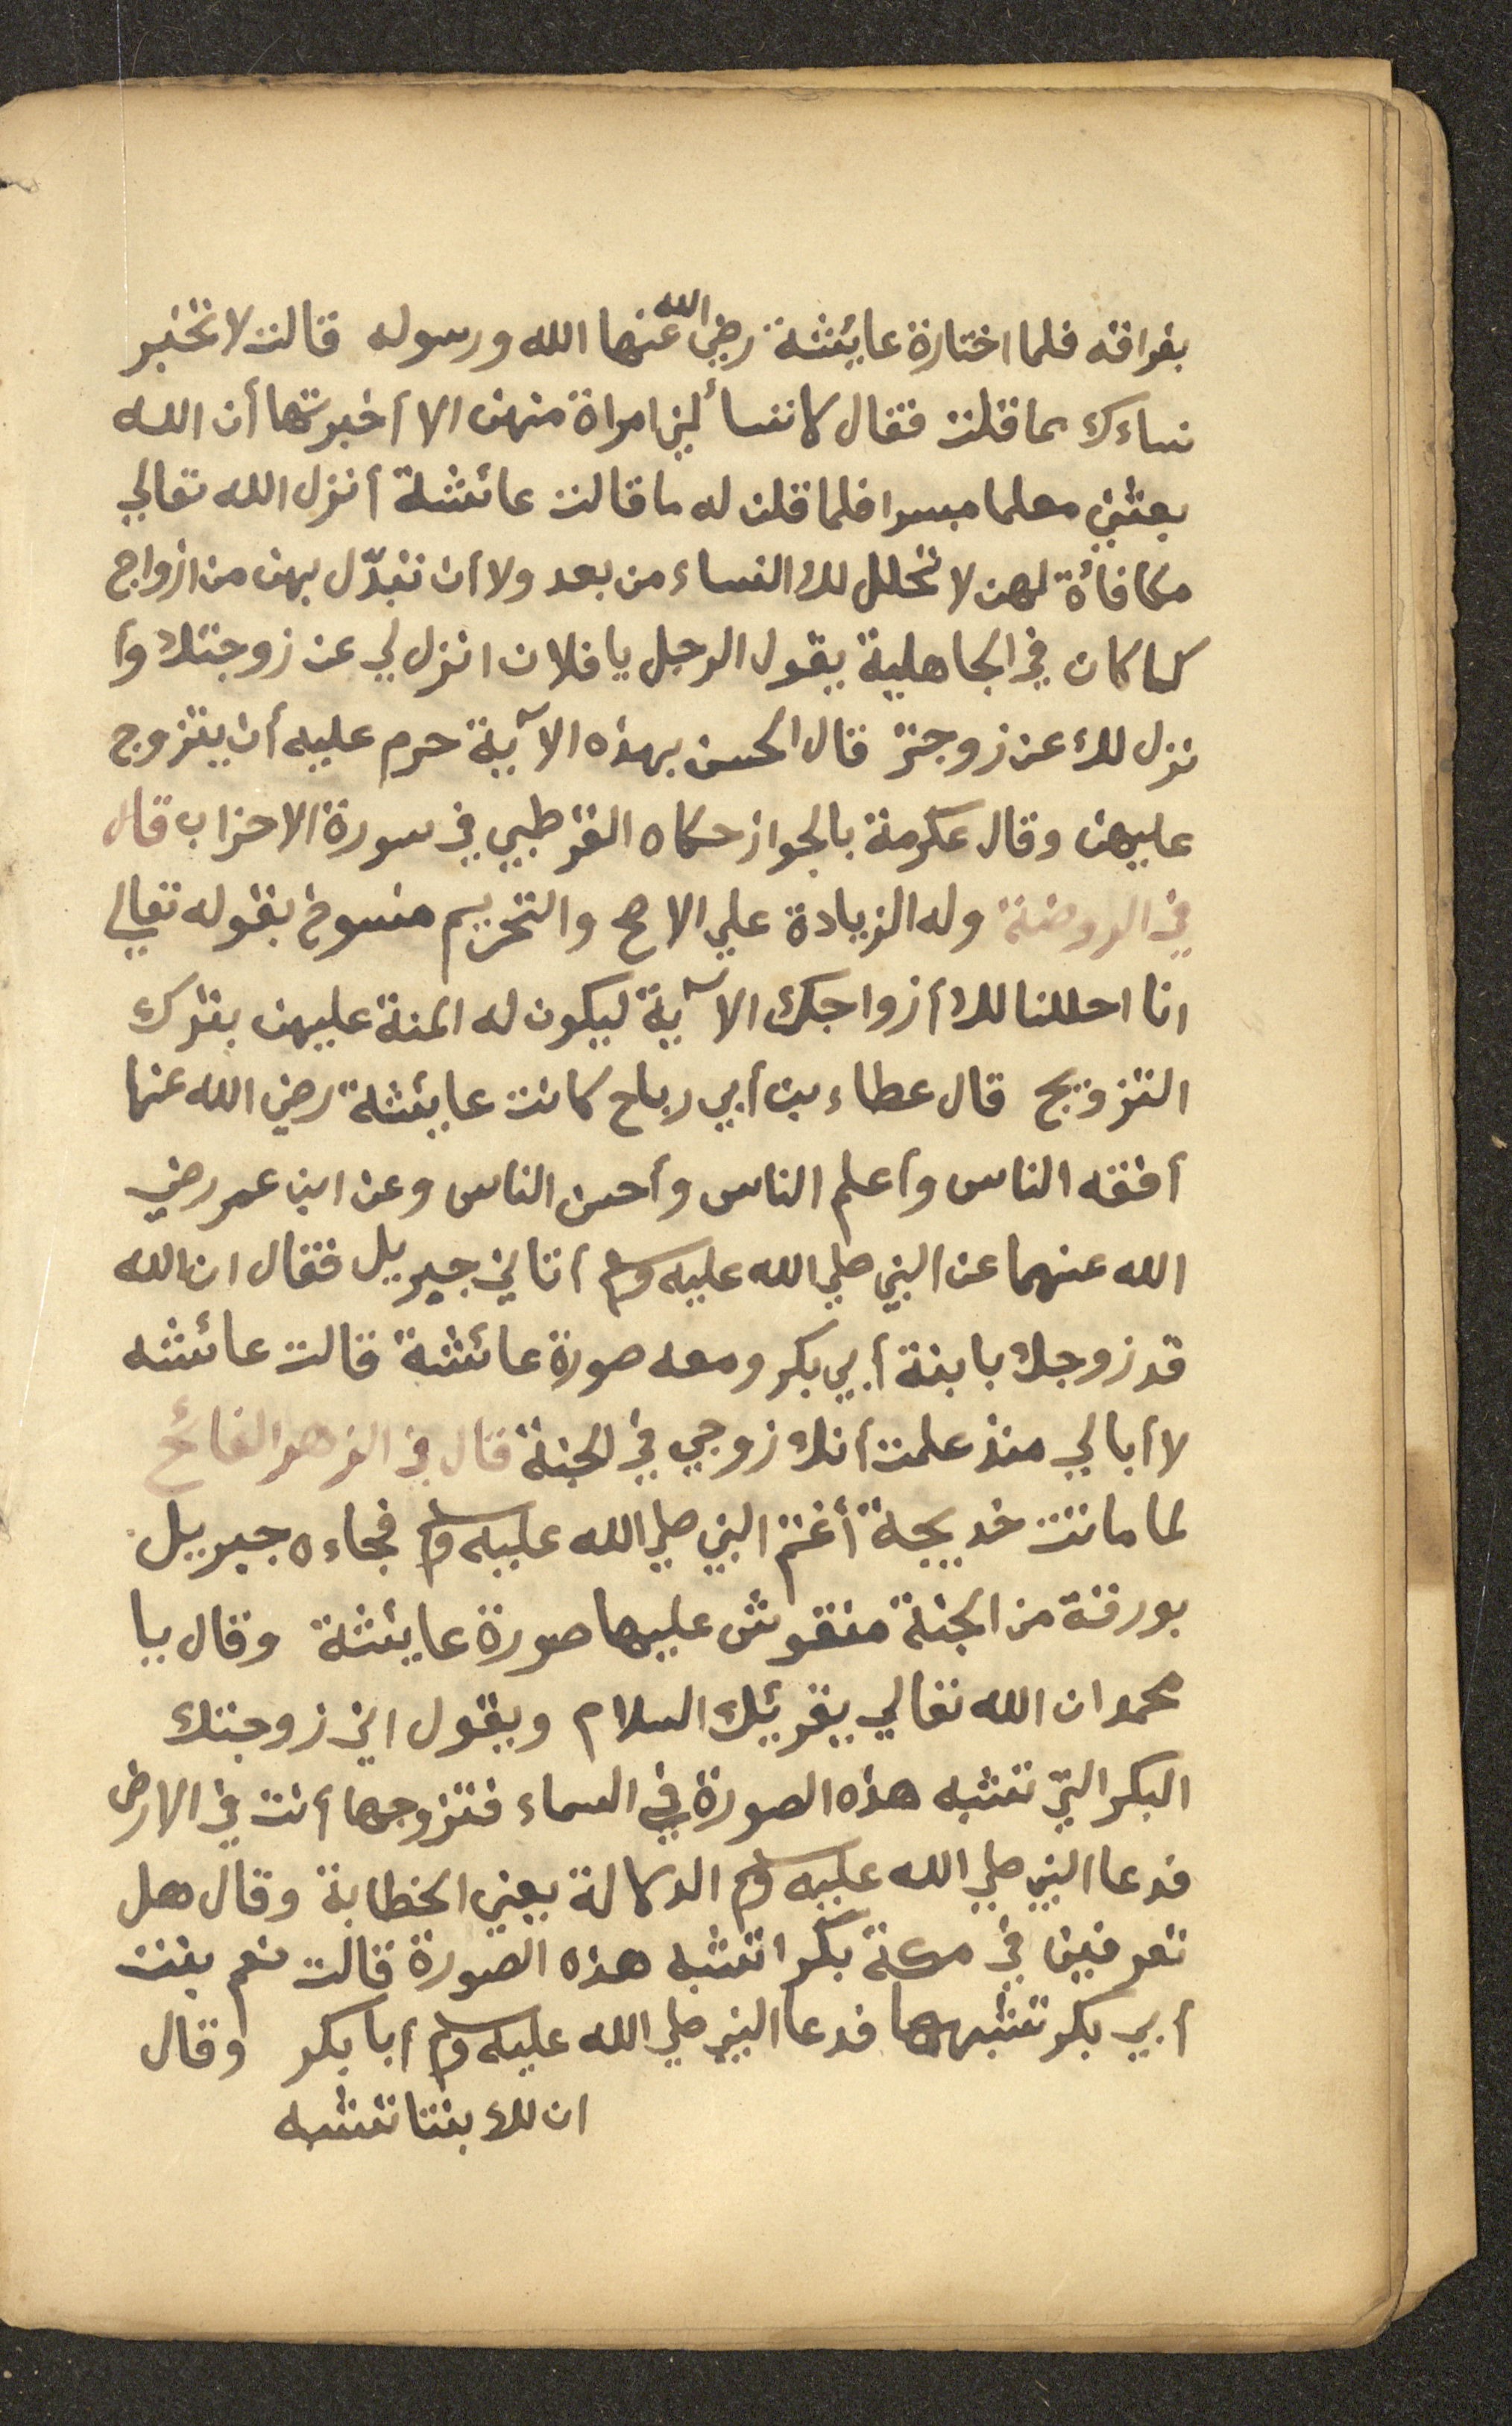 بفراقه فلما اختارة عايئشة رضي الله عنها الله ورسوله قالت لا تخبر
نساءك بما قلت فقال لا تسألني امراة منهن الا أخبرتها أن الله
بعثني معلما ميسرا فلما قلن له ما قالت عائشة أنزل الله تعالي
مكافأة لهن لا تحلل لك النساء من بعد ولا أن تبدّل بهن من ازواج
كما كان في الجاهلية يقول الرجل يا فلان انزل لي عن زوجتك وأ
نزل لك عن زوجتي قال الحسن بهذه الآية حرم عليه أن يتزوج
عليهن وقال عكرمة بالجواز حكاه القرطبي في سورة الاحزاب قال
في الروضة وله الزيادة علي الاصح والتحريم منسوخ بقوله تعالي
انا احللنا لك أزواجك الآية ليكون له المنة عليهن بترك
التزويج قال عطاء بن أبي رباح كانت عايئشة رضي الله عنها
أفقه الناس وأعلم الناس وأحسن الناس وعن ابن عمر رضي
الله عنهما عن النبي صلي الله عليه وسلم أتاني جبريل فقال ان الله
قد زوجك بابنة أبي بكر ومعه صورة عائشة قالت عائشه
لا أبالي منذ علمت أنك زوجي في الجنة قال في الزهر الفائح
لما ماتت خديجة أغتم النبي صلي الله عليه وسلم فجاءه جبريل
بورقة من الجنة منقوش عليها صورة عايئشة وقال يا
محمد ان الله تعالي يقريئك السلام ويقول اني زوجتك
البكر التي تشبه هذه الصورة في السماء فتزوجها أنت في الارض
فدعا النبي صلي الله عليه وسلم الدكالة يعني الخطابة وقال هل
تعرفين في مكة بكرا تشبه هذه الصورة قالت نعم بنت
أبي بكر تشبهها فدعا النبي صلي الله عليه وسلم أبا بكر وقال
ان لك بنتا تشبه